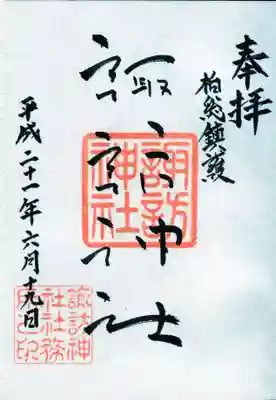 奉拝
柏総鎮護
諏訪神社
諏訪
神社
平成二十一年六月十九日
諏訪神
社社務
所之印